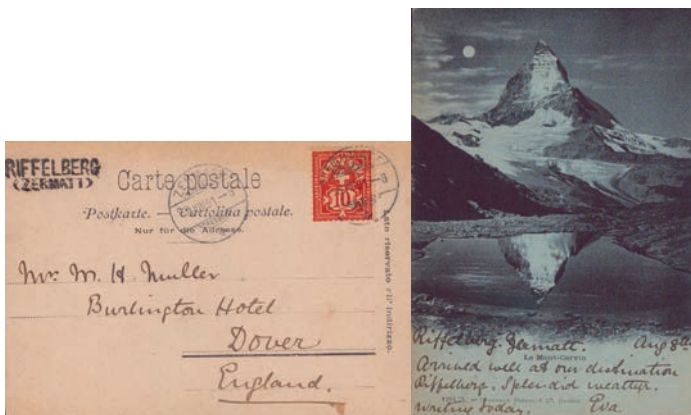 RIFFELBERG
(ZERMATT)
Carte postale
Postkarte. — Cartolina postale.
Nur für die Adresse.
Lato riservato all' indirizzo.
10
Mr. M. H. Muller
Burlington Hotel
Dover
England.
Riffelberg. Zermatt. Aug 8th
Le Mont-Cervin
Arrived well at our destination
Riffelberg. Splendid weather.
Writing today. Eva